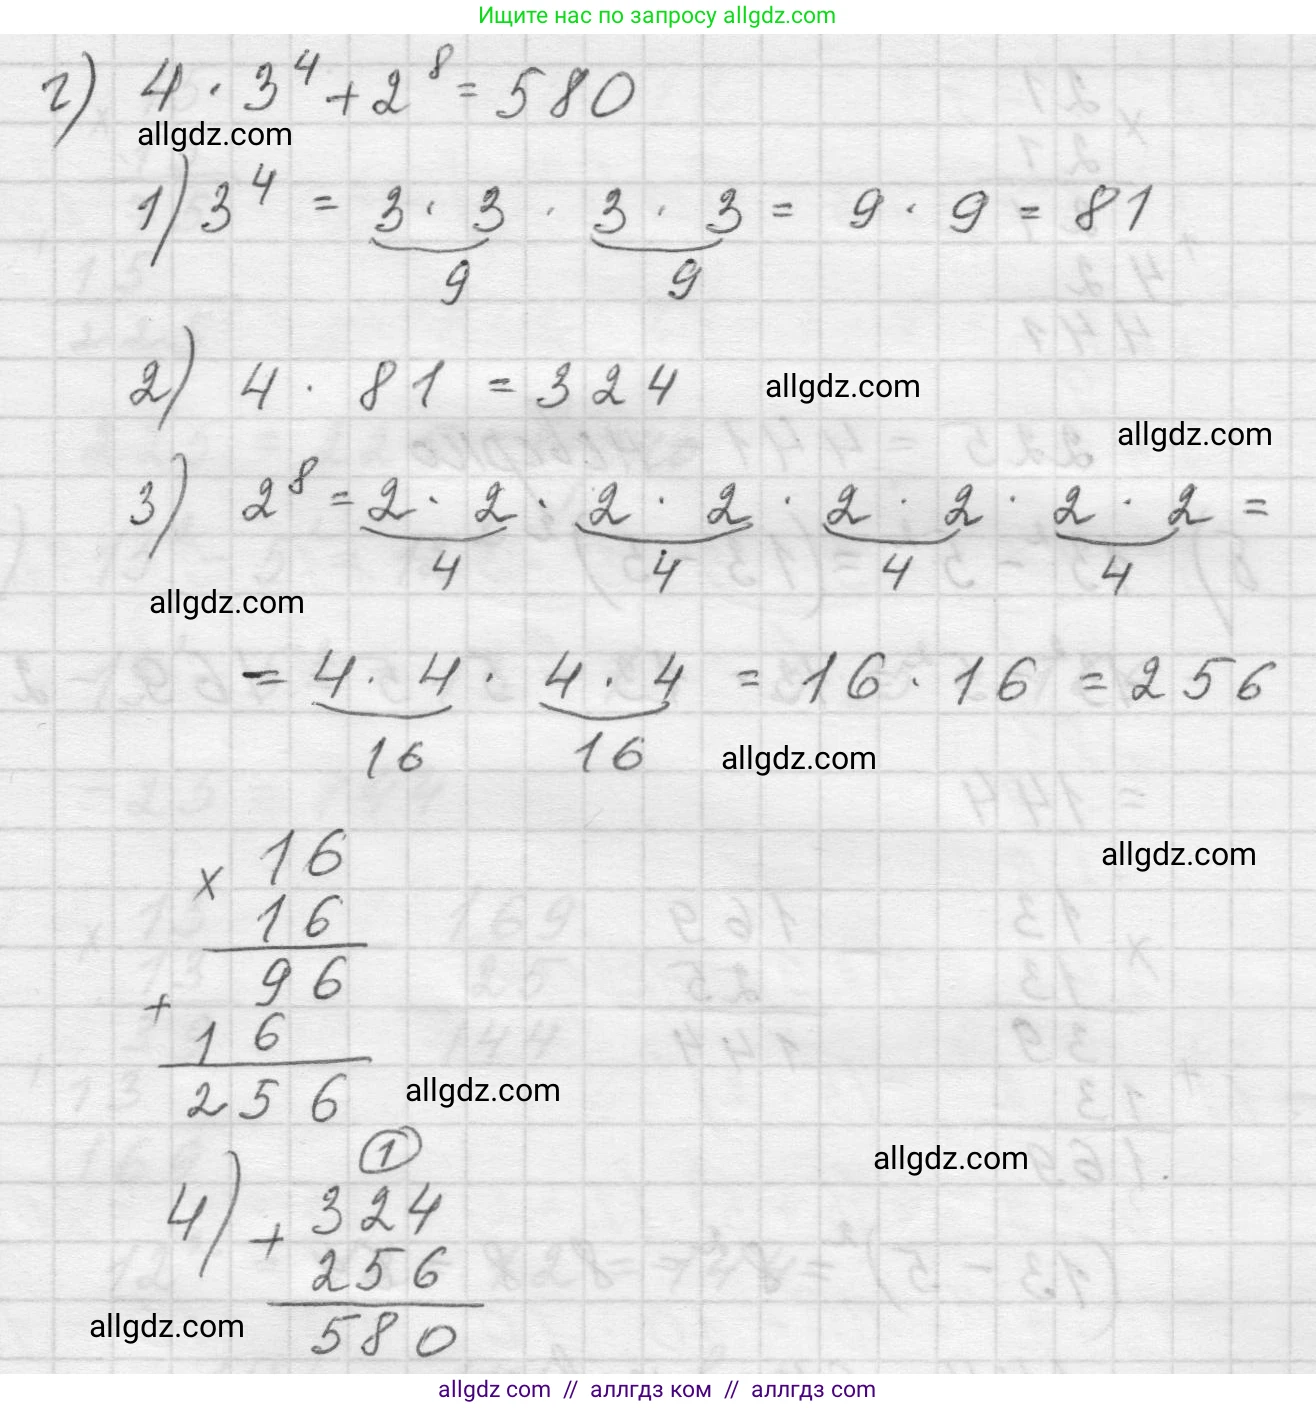 Ищите нас по запросу allgdz.com
г) 4 · 3⁴ + 2⁸ = 580
allgdz.com
1) 3⁴ = 3 · 3 · 3 · 3 = 9 · 9 = 81
9 9
2) 4 · 81 = 324
allgdz.com
allgdz.com
3) 2⁸ = 2 · 2 · 2 · 2 · 2 · 2 · 2 · 2 =
4 4 4 4
allgdz.com
= 4 · 4 · 4 · 4 = 16 · 16 = 256
16 16
allgdz.com
× 16
allgdz.com
16
96
+ 16
256
allgdz.com
1
allgdz.com
4) + 324
256
allgdz.com
580
allgdz com // аллгдз ком // аллгдз com